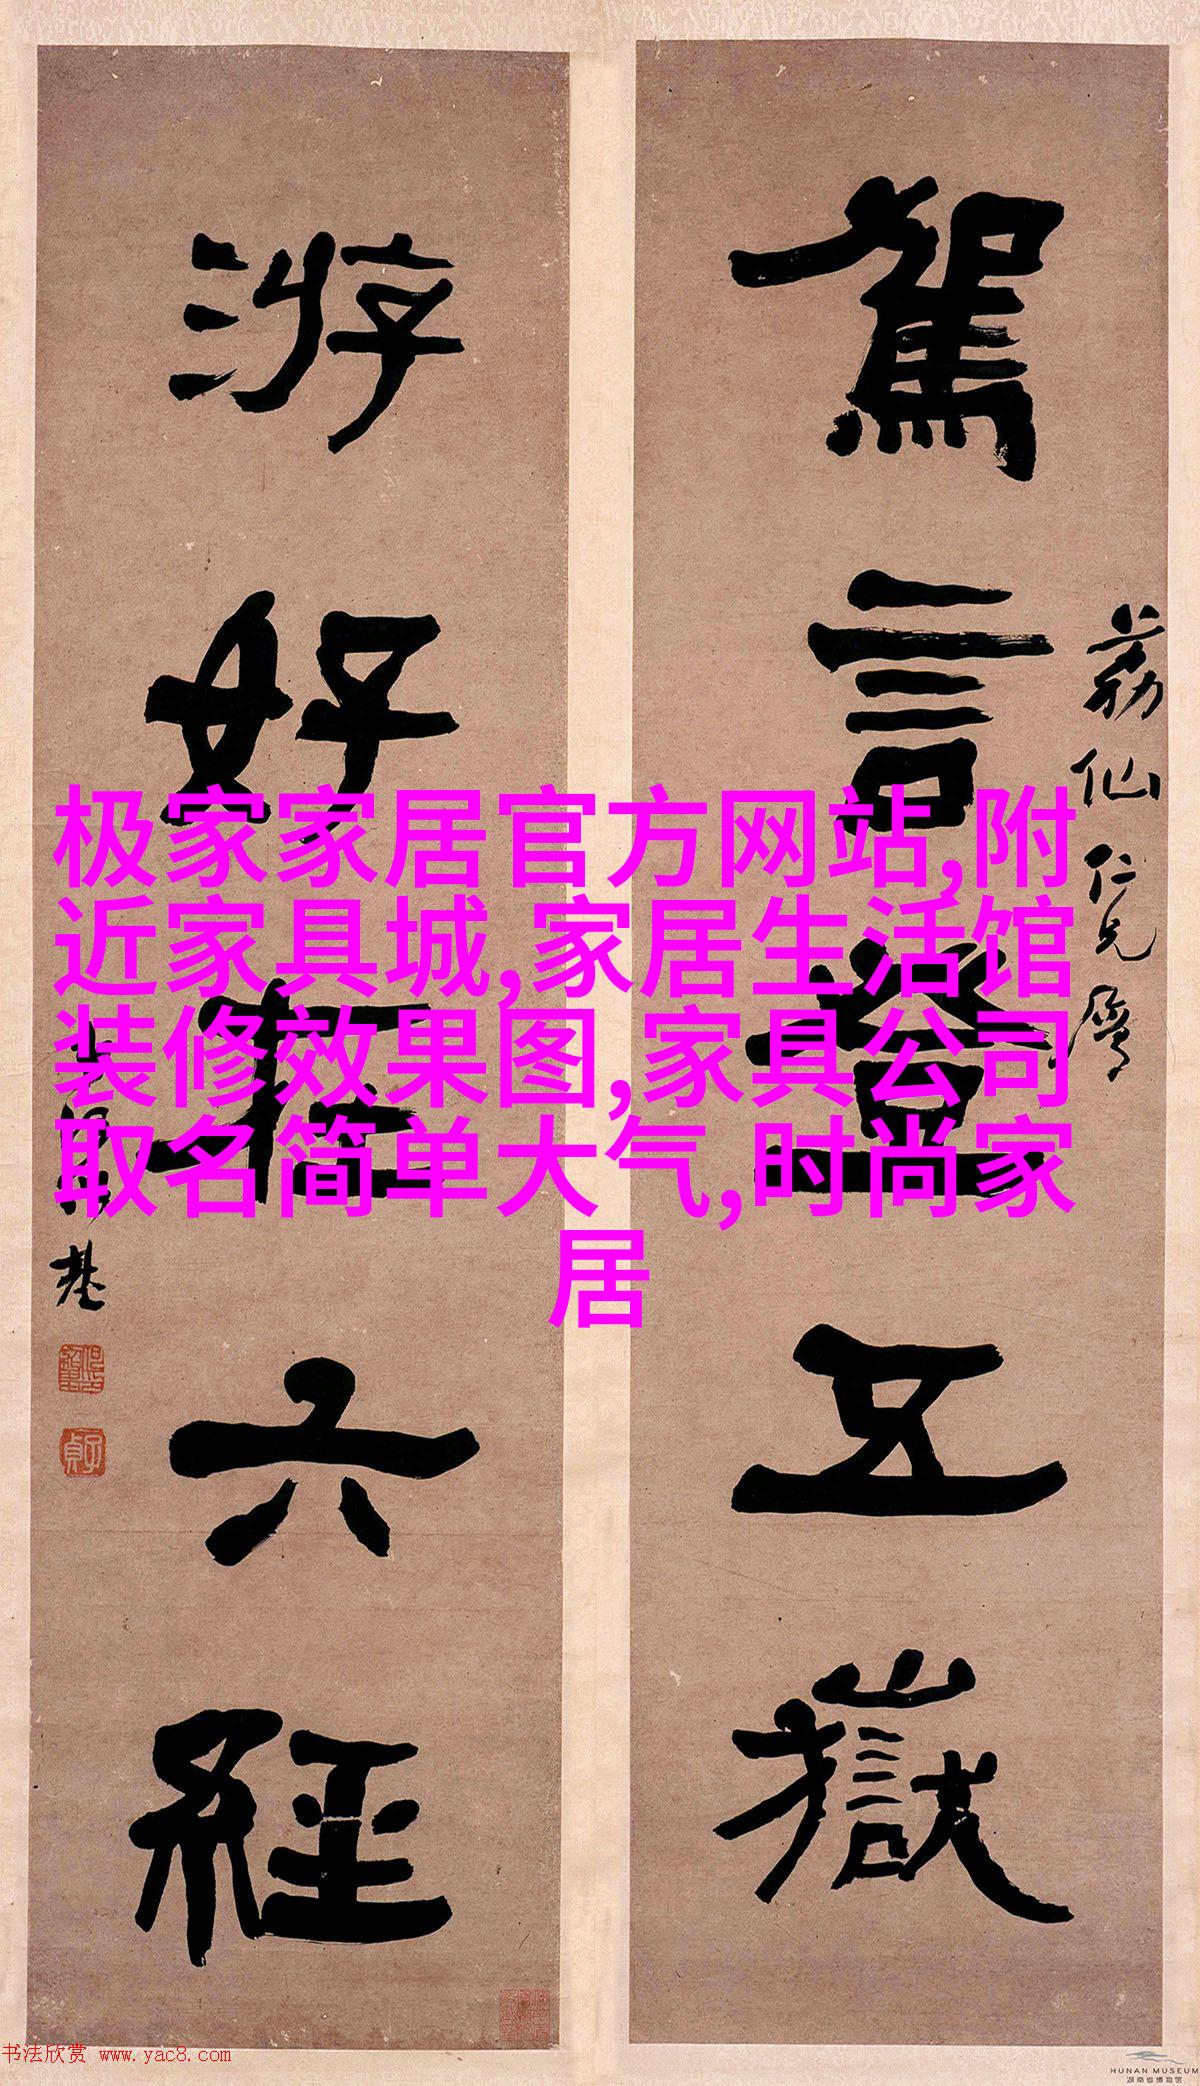 駕言登五嶽
荔仙仁兄属
游好在六經
何紹基
極家家居官方网站,附
近家具城,家居生活馆
装修效果图,家具公司
取名简单大气,时尚家
居
书法欣赏 www.yac8.com
HUNAN MUSEUM
湖南省博物馆